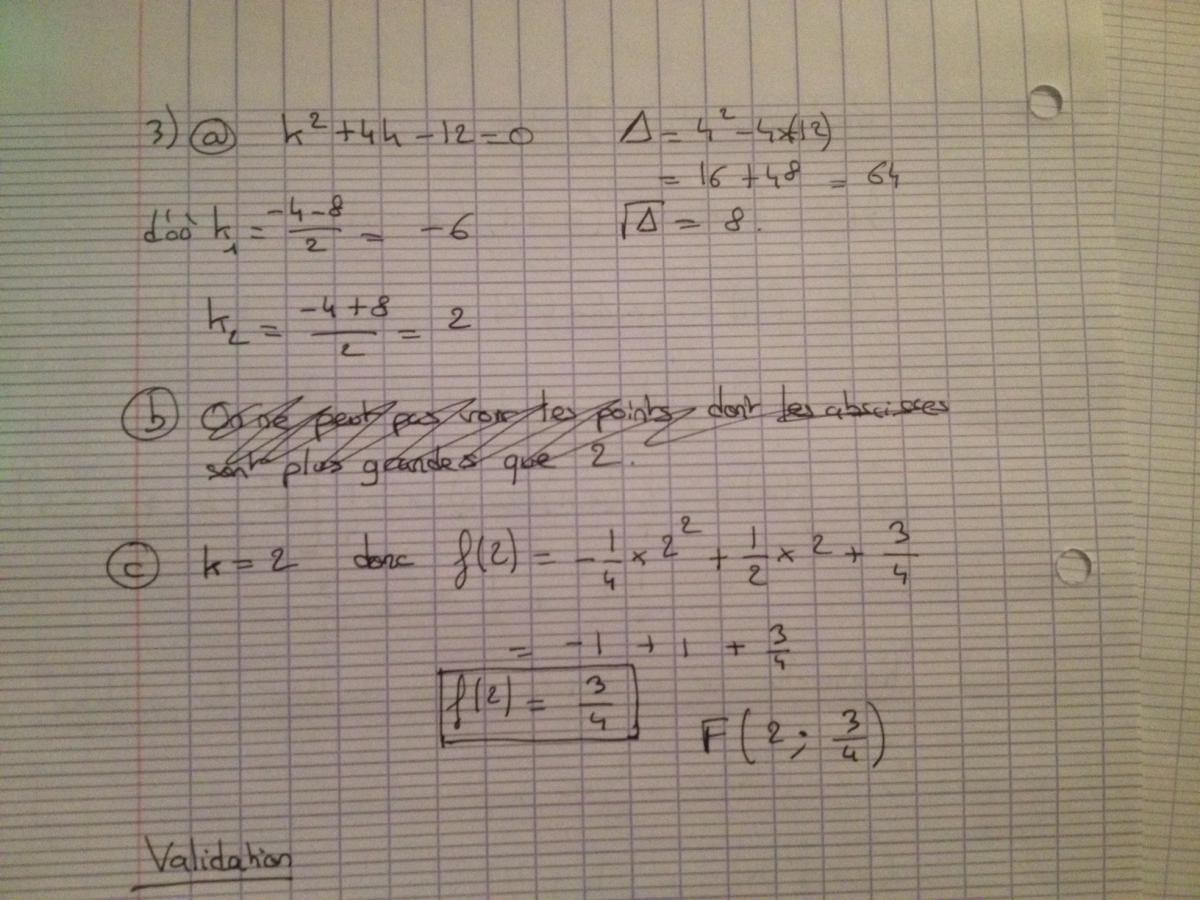 3) ⓐ k² + 4k - 12 = 0    Δ = 4² - 4×(-12)
= 16 + 48 = 64
d'où k₁ = (-4-8)/2 = -6    √Δ = 8.
k₂ = (-4+8)/2 = 2
ⓑ On ne peut pas les points dont les abscisses
sont plus grandes que 2.
ⓒ k = 2 donc f(2) = -1/4 × 2² + 1/2 × 2 + 3/4
= -1 + 1 + 3/4
f(2) = 3/4    F(2 ; 3/4)
Validation